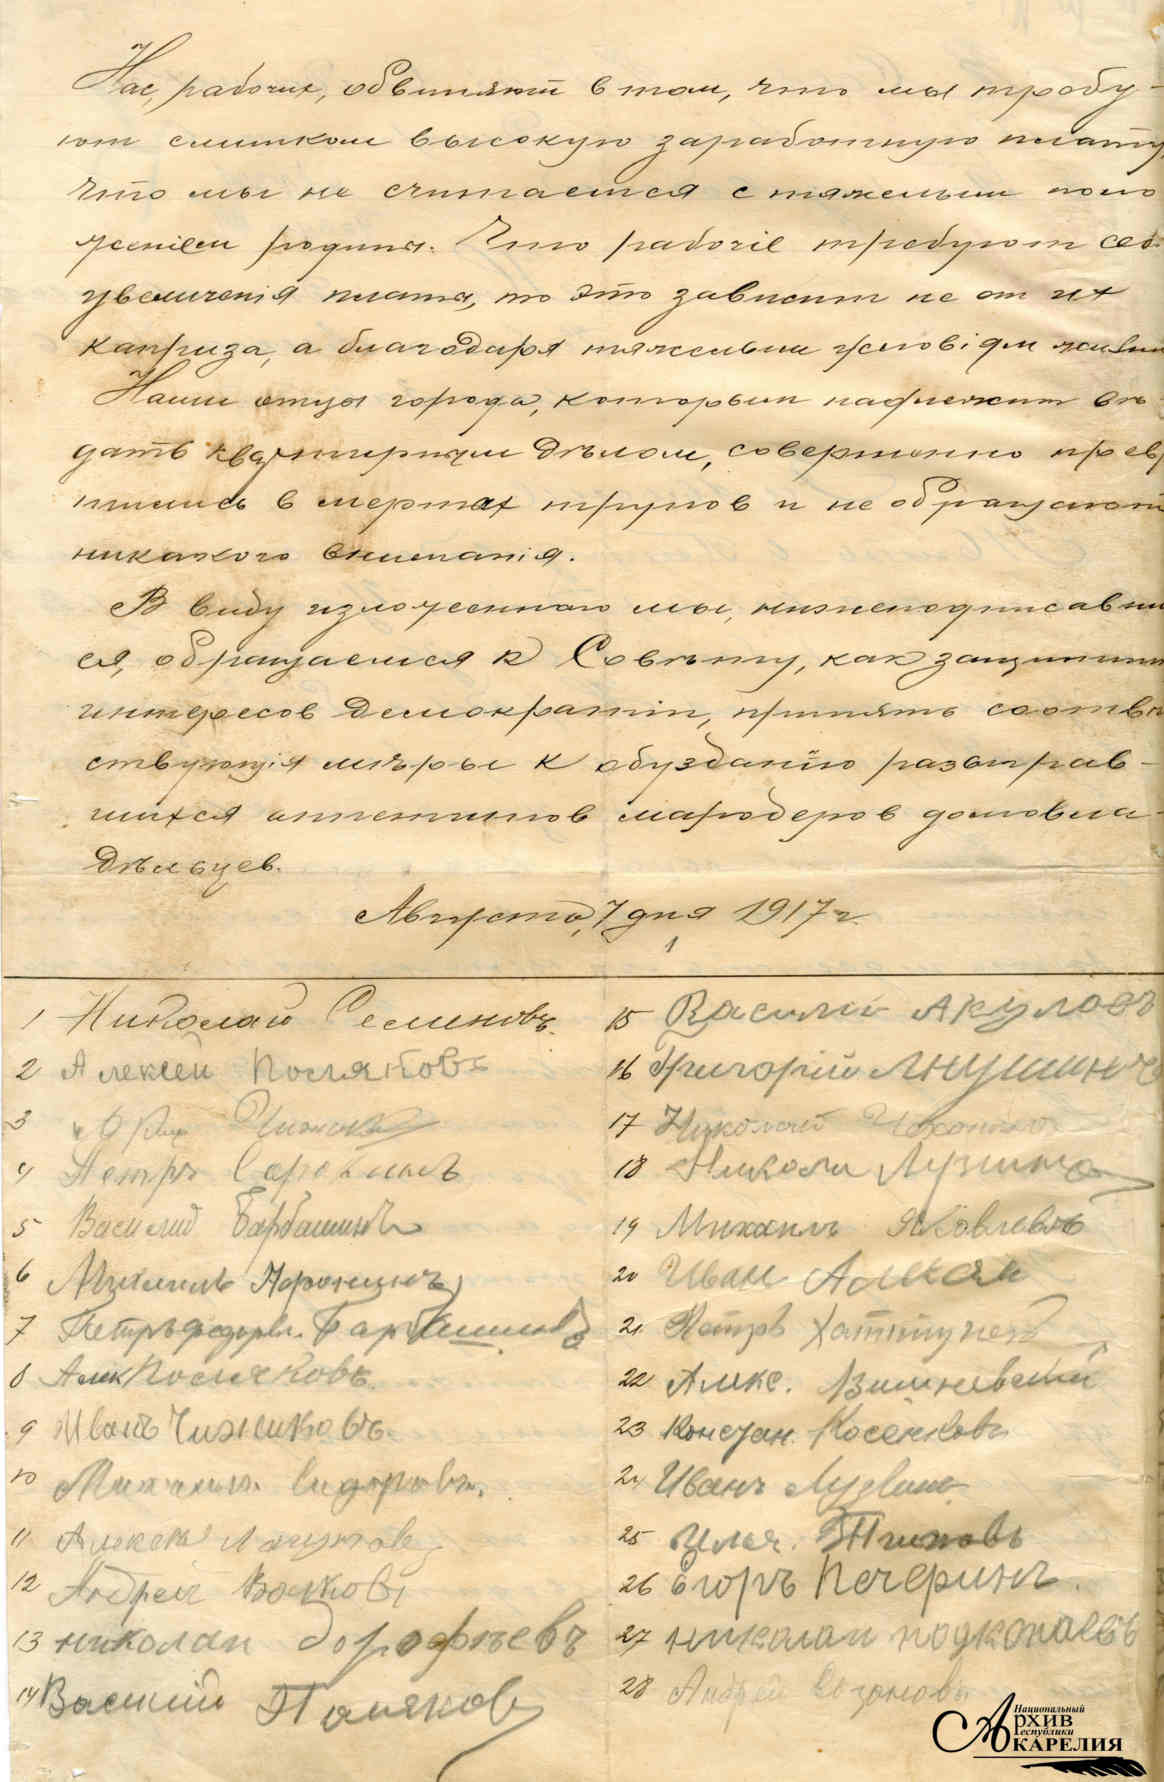 Нас, рабочих, обвиняют в том, что мы требу-
ют слишком высокую заработную плату
что мы не считаемся с тяжелым поло
женіем родины. Что рабочіе требуют себе
увеличенія платы, то это зависит не от их
каприза, а благодаря тяжелым условіям жизни
Наши отцы города, которым надлежит вѣ
дать квартирным дѣлом, совершенно превр
тились в мертвых трупов и не обращают
никакого вниманія.
В виду изложеннаго мы, нижеподписавши
ся, обращаемся к Совѣту, как защитни
интересов демократіи, принять соотвѣ
ствующія мѣры к обузданію разыграв-
шихся аппетитов мародеров домовла-
дѣльцев.
Августа, 7 дня 1917 г.
1 Николай Семеновъ.
2 Алексей Поляковъ
3
4 Петръ Сорокинъ
5 Василий Барбашинъ
6 Михаилъ
7 Петръ Федоров. Барбашинъ
8 Алек Поляковъ
9 Иванъ Чижиковъ
10 Михаилъ Сидоровъ.
11 Алексей
12 Андрей Волковъ
13 николаи дорофѣевъ
14 Василий Поляков
15 Василий Акуловъ
16 Григорій
17 Николай
18 Николай Лузинъ
19 Михаилъ Яковлевъ
20 Иван
21 Петръ
22 Алекс. Вишневский
23 Констан. Косенковъ
24 Иванъ
25 Илья
26 Егоръ Печеринъ.
27 николаи подкопаевъ
28 Андрей
Национальный
Архив
Республики
Карелия